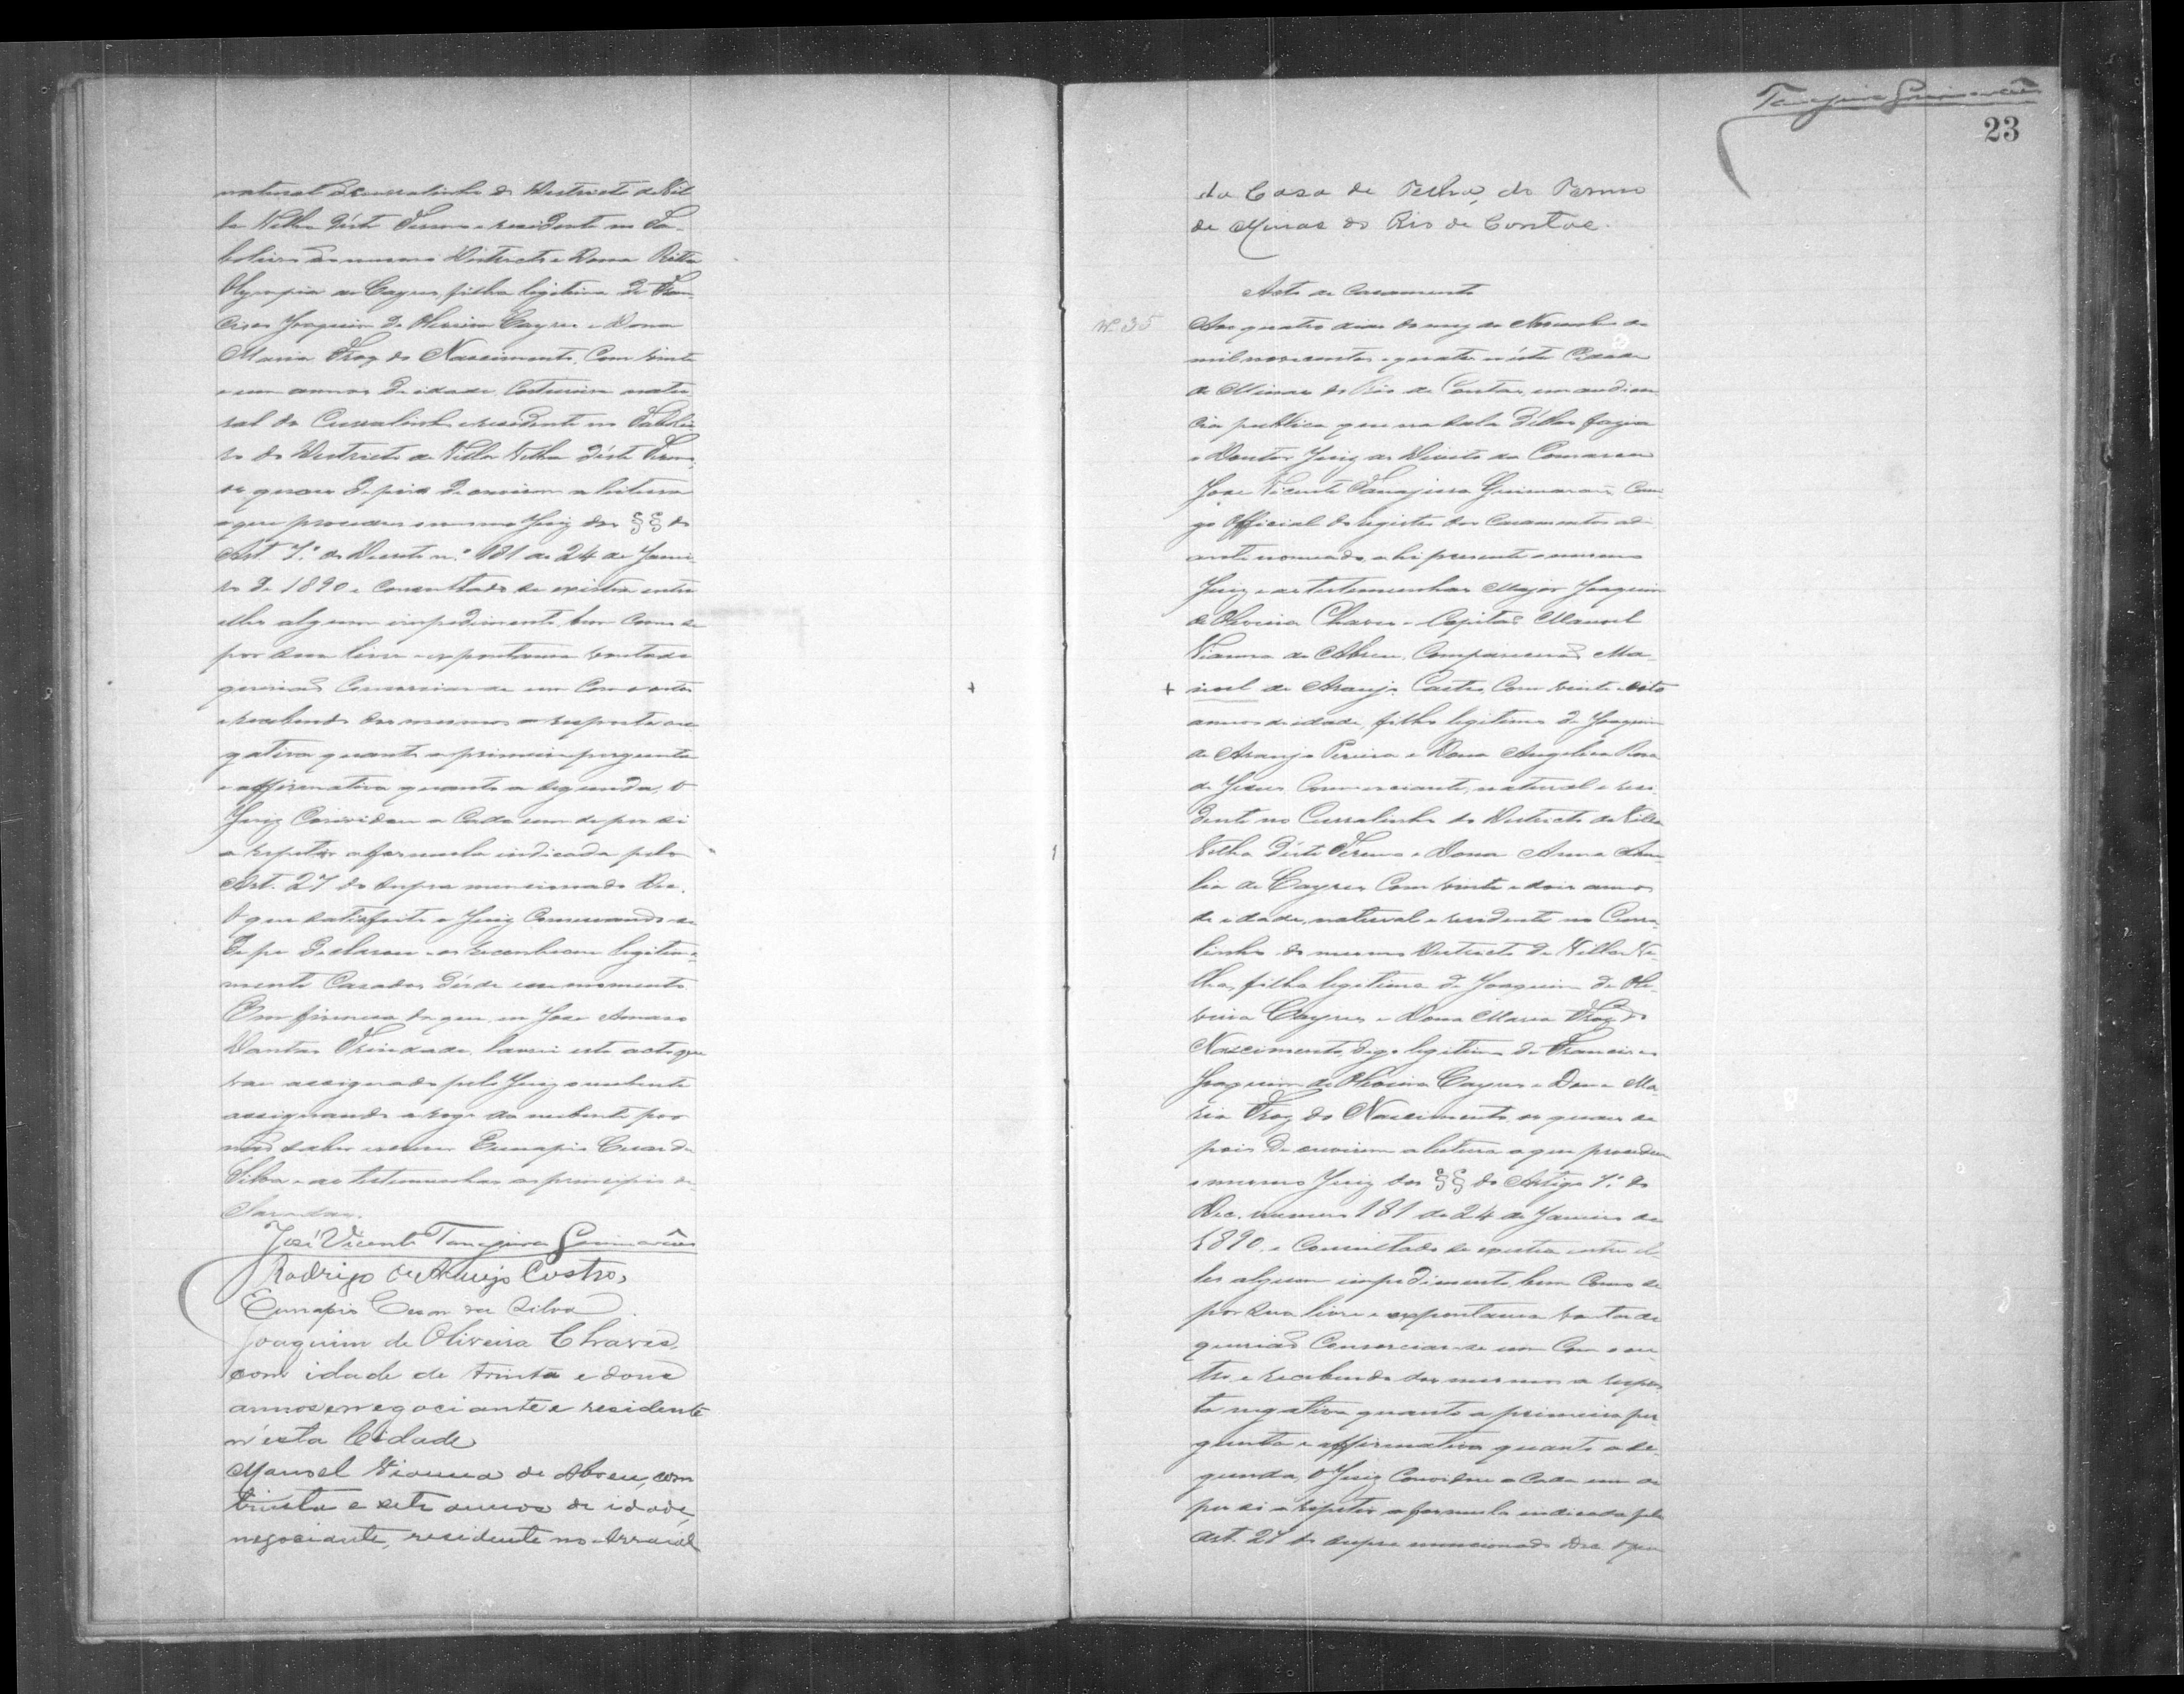 natural do Curralinho do Districto de Vil
la Velha d'éste Termo e residente no Ta-
boleiro do mesmo Districto e Dona Ritta
Olympia de Cayres, filha legitima de Fran
cisco Joaquim de Oliveira Cayres e Dona
Maria Froz do Nascimento, com vinte
e um annos de idade, Costureira, natu
ral do Curralinho e residente no Tabolei
ro do Districto de Villa Velha d'éste Termo,
os quaes depois de ouvirem a leitura
a que procedeu o mesmo Juiz dos §§ do
Art. 7.º do Decreto n.º 181 de 24 de Janei
ro de 1890 e consultado se existia entre
elles algum impedimento, bem como se
por sua livre e expontanea vontade
queriaõ consorciar-se um com o outro
e recebendo dos mesmos a resposta ne
gativa quanto a primeira pergunta
e affirmativa quanto a segunda, o
Juiz convidou a cada um de per si
a repetir a formula indicada pelo
Art. 27 do supra mencionado Dec.
O que satisfeito o Juiz conservando-se
de pe declarou e os reconheceu legitima
mente casados désde esse momento.
Em firmesa do que, eu Jose Amaro
Dantas Trindade, lavrei este acto que
vae assignado pelo Juiz o nubente
assignando a rogo da nubente por
naõ saber escrever Eunapio Cesar da
Silva e as testemunhas a principio de
claradas.
José Vicente Tanajura Guimarães
Rodrigo de Araujo Castro,
Eunapio Cesar da Silva.
Joaquim de Oliveira Chaves,
com idade de trinta e dous
annos e negociante e residente
n'esta Cidade
Manoel Vianna de Abreu, com
trinta e sete annos de idade,
negociante, residente no Arraial
Tanajura Guimarães
23
da Casa de Telha, do Termo
de Minas do Rio de Contas.
Acto de Casamento
Nº 35
Aos quatro dias do mez de Novembro de
mil novecentos e quatro n'ésta Cidade
de Minas do Rio de Contas, em audien
cia publica que na sala déllas fazia
o Doutor Juiz de Direito da Comarca
Jose Vicente Tanajura Guimarães, Com
go Official do registro dos Casamentos adi
ante nomeado, ahi presente o mesmo
Juiz e as testemunhas Major Joaquim
de Oliveira Chaves e Capitaõ Manoel
Vianna de Abreu, Compareceraõ Ma-
noel de Araujo Castro, Com vinte e oito
annos de idade, filho legitimo de Joaquim
de Araujo Pereira e Dona Angelica Rosa
de Jesus, Commerciante, natural e resi
dente no Curralinho do Districto de Villa
Velha d'éste Termo e Dona Anna Ame
lia de Cayres Com vinte e dois annos
de idade, natural e residente no Curra
linho do mesmo Districto de Villa Ve
lha, filha legitima de Joaquim de Oli
veira Cayres e Dona Maria Froz do
Nascimento, digo legitima de Francisco
Joaquim de Oliveira Cayres e Dona Ma
ria Froz do Nascimento, os quaes de
pois de ouvirem a leitura a que procedeu
o mesmo Juiz dos §§ do Artigo 7.º do
Dec. numero 181 de 24 de Janeiro de
1890, e Consultado se existia entre el-
les algum impedimento, bem Como se
por sua livre e expontanea vontade
queriaõ Consorciar-se um Com o ou
tro, e recebendo dos mesmos a respos
ta negativa quanto a primeira per
gunta e affirmativa quanto a se-
gunda, o Juiz Convidou a Cada um de
per si a repetir a formula indicada pelo
Art. 27 do supra mencionado Dec. o que